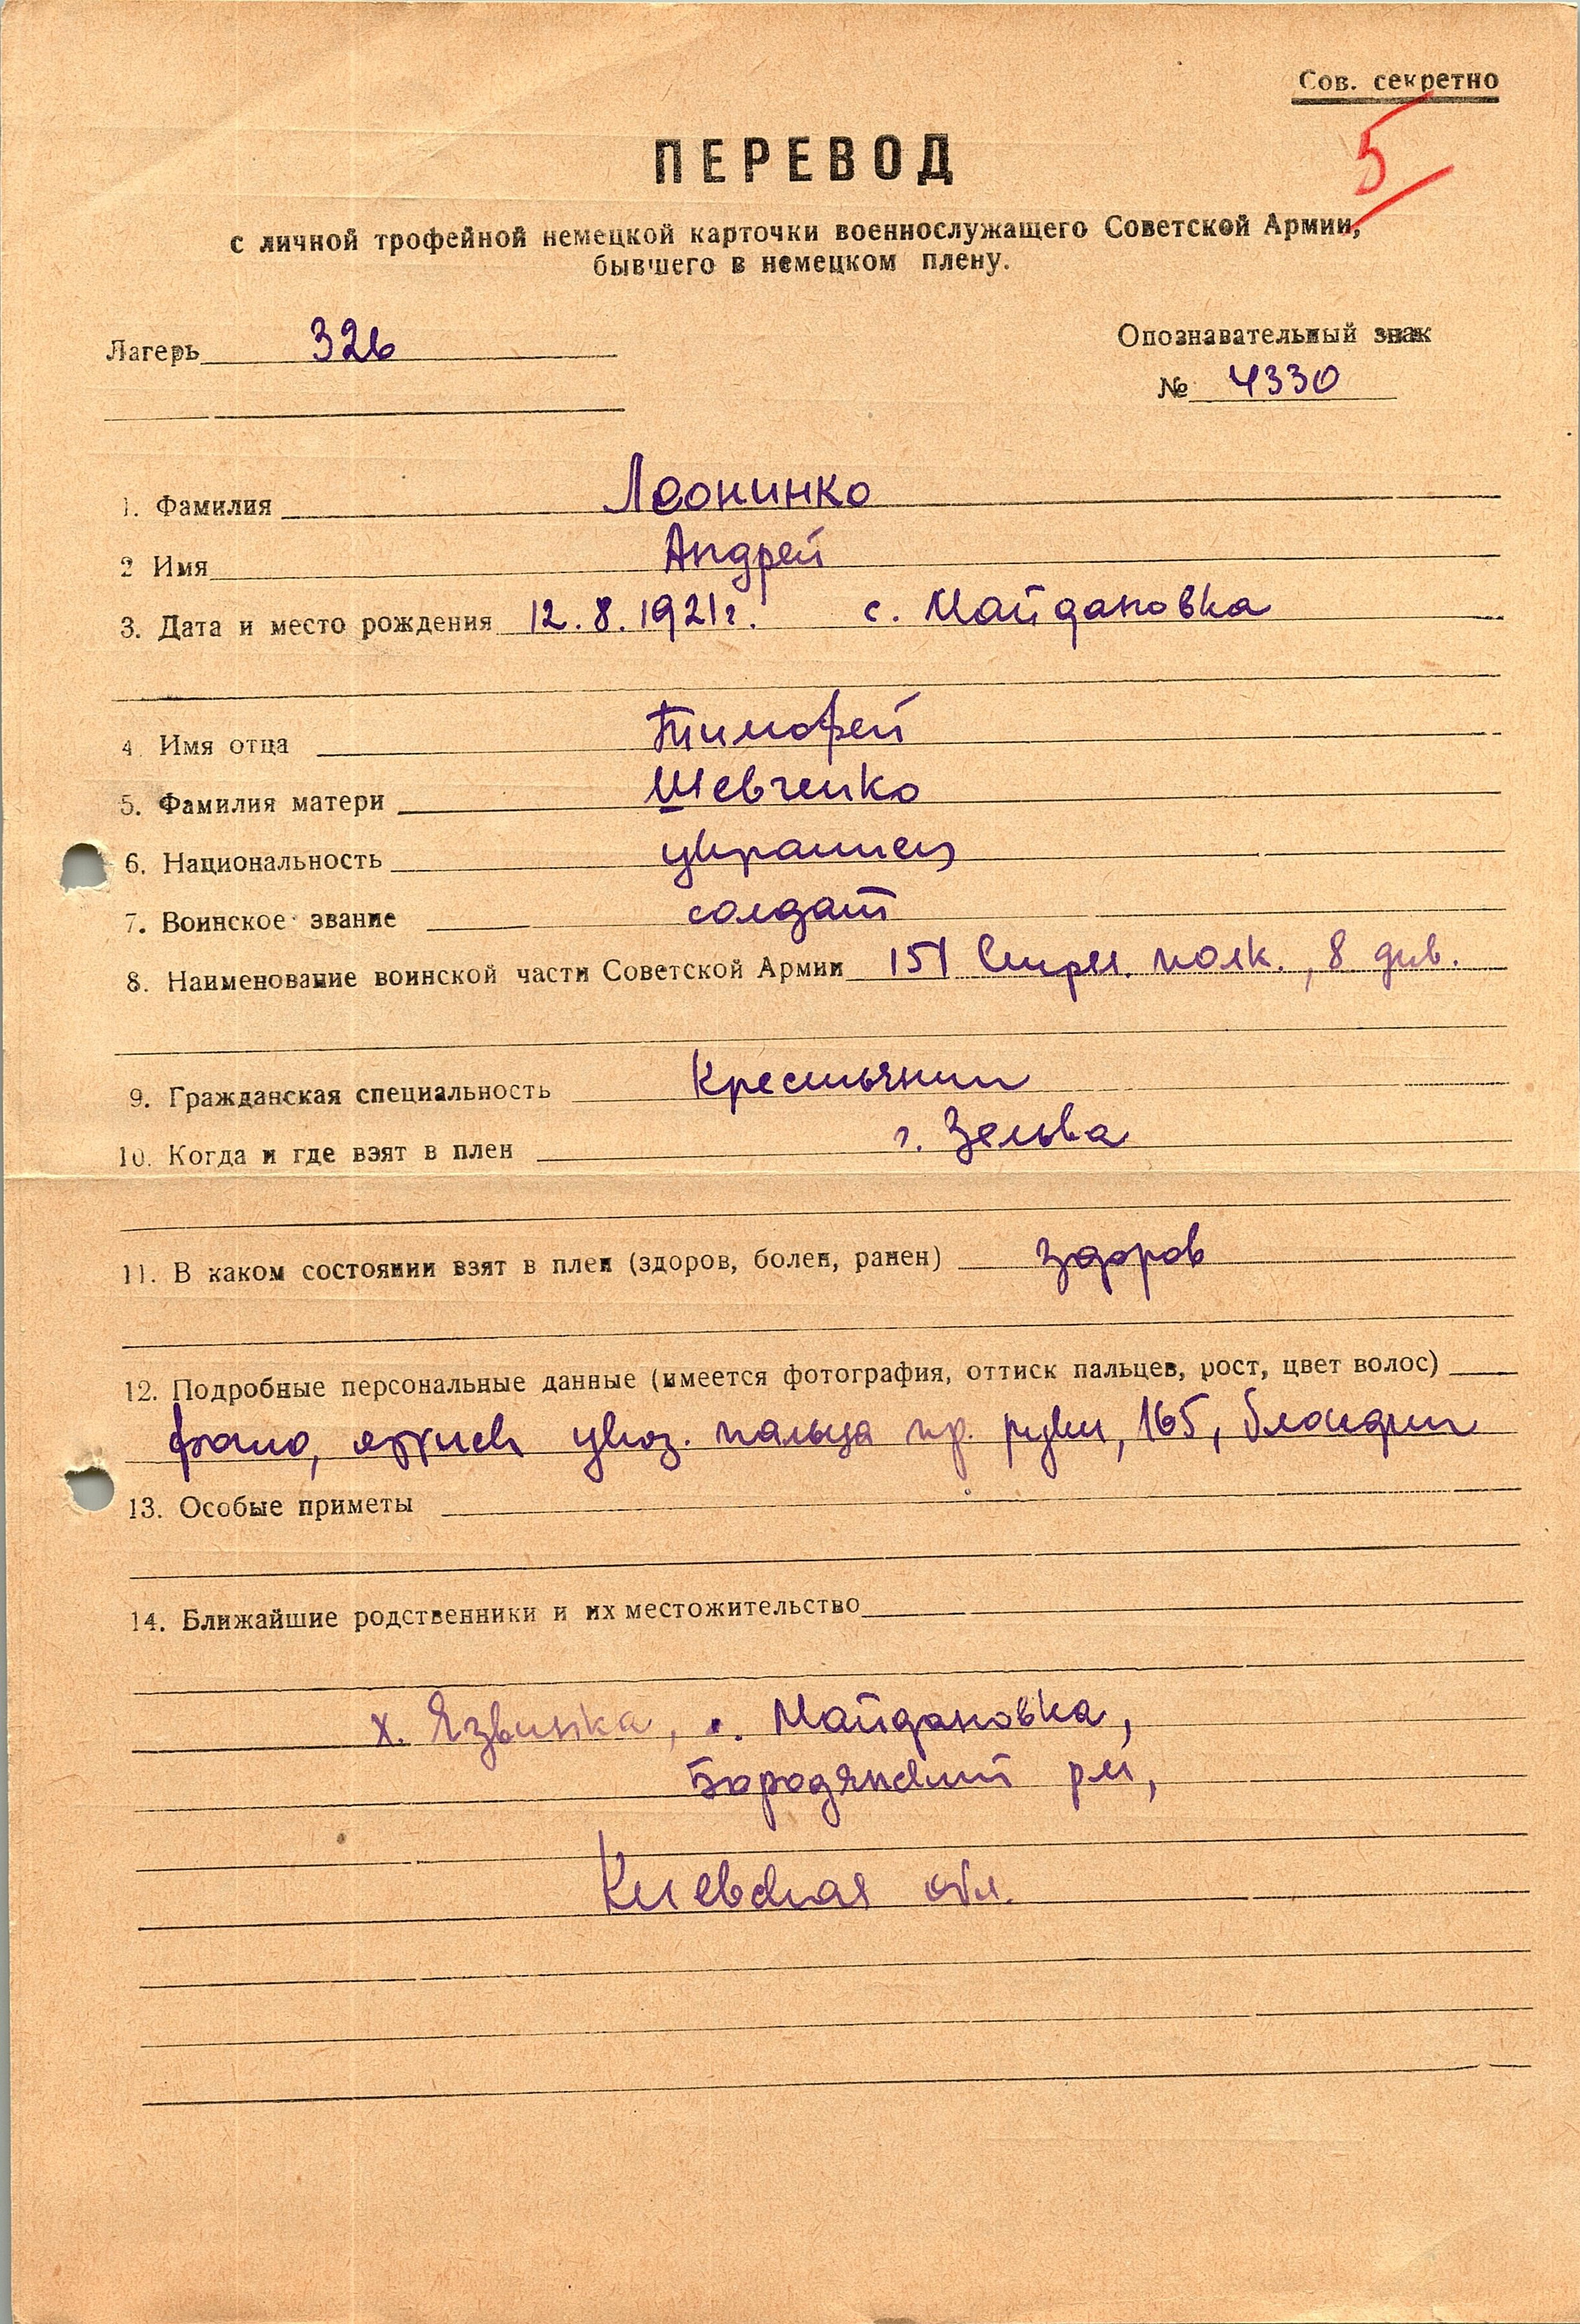 Сов. секретно
5
ПЕРЕВОД
с личной трофейной немецкой карточки военнослужащего Советской Армии,
бывшего в немецком плену.
Лагерь 326
Опознавательный знак
№ 4330
1. Фамилия Леонинко
2 Имя Андрей
3. Дата и место рождения 12.8.1921г. с. Майдановка
4. Имя отца Тимофей
5. Фамилия матери Шевченко
6. Национальность украинец
7. Воинское звание солдат
8. Наименование воинской части Советской Армии 151 Стрел. полк., 8 див.
9. Гражданская специальность Крестьянин
10. Когда и где взят в плен г. Зельва
11. В каком состоянии взят в плен (здоров, болен, ранен) здоров
12. Подробные персональные данные (имеется фотография, оттиск пальцев, рост, цвет волос)
фото, оттиск указ. пальца пр. руки, 165, блондин
13. Особые приметы
14. Ближайшие родственники и их местожительство
х. Язвинка, с. Майдановка,
Бородянский р-н,
Киевская обл.